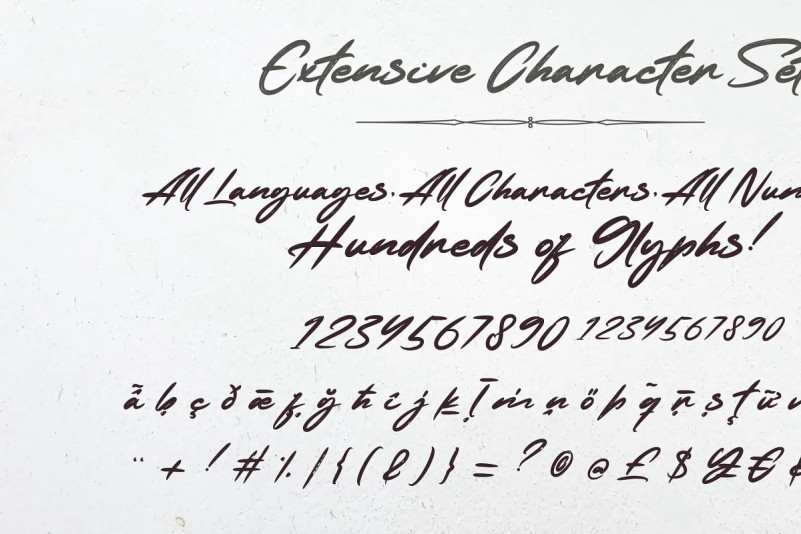 Extensive Character Set
All Languages. All Characters. All Num
Hundreds of Glyphs!
1234567890 1234567890
ḇ ç ð ǣ ğ ħ ḵ ö þ
¨ + ! # % / | { ( & ) } = ? © @ £ $ ¥ €